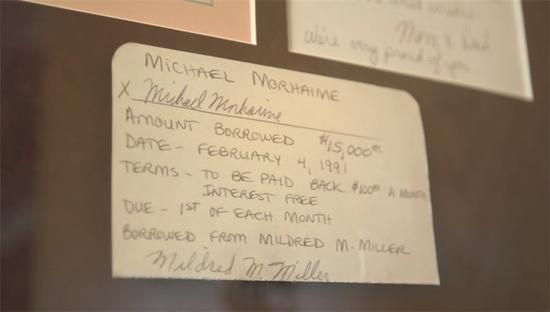 Mom & Dad
We're very proud of you
MICHAEL MORHAIME
X Michael Morhaime
AMOUNT BORROWED $15,000⁰⁰
DATE - FEBRUARY 4, 1991
TERMS - TO BE PAID BACK $100⁰⁰ A MONTH
INTEREST FREE
DUE - 1ST OF EACH MONTH
BORROWED FROM MILDRED M. MILLER
Mildred M. Miller